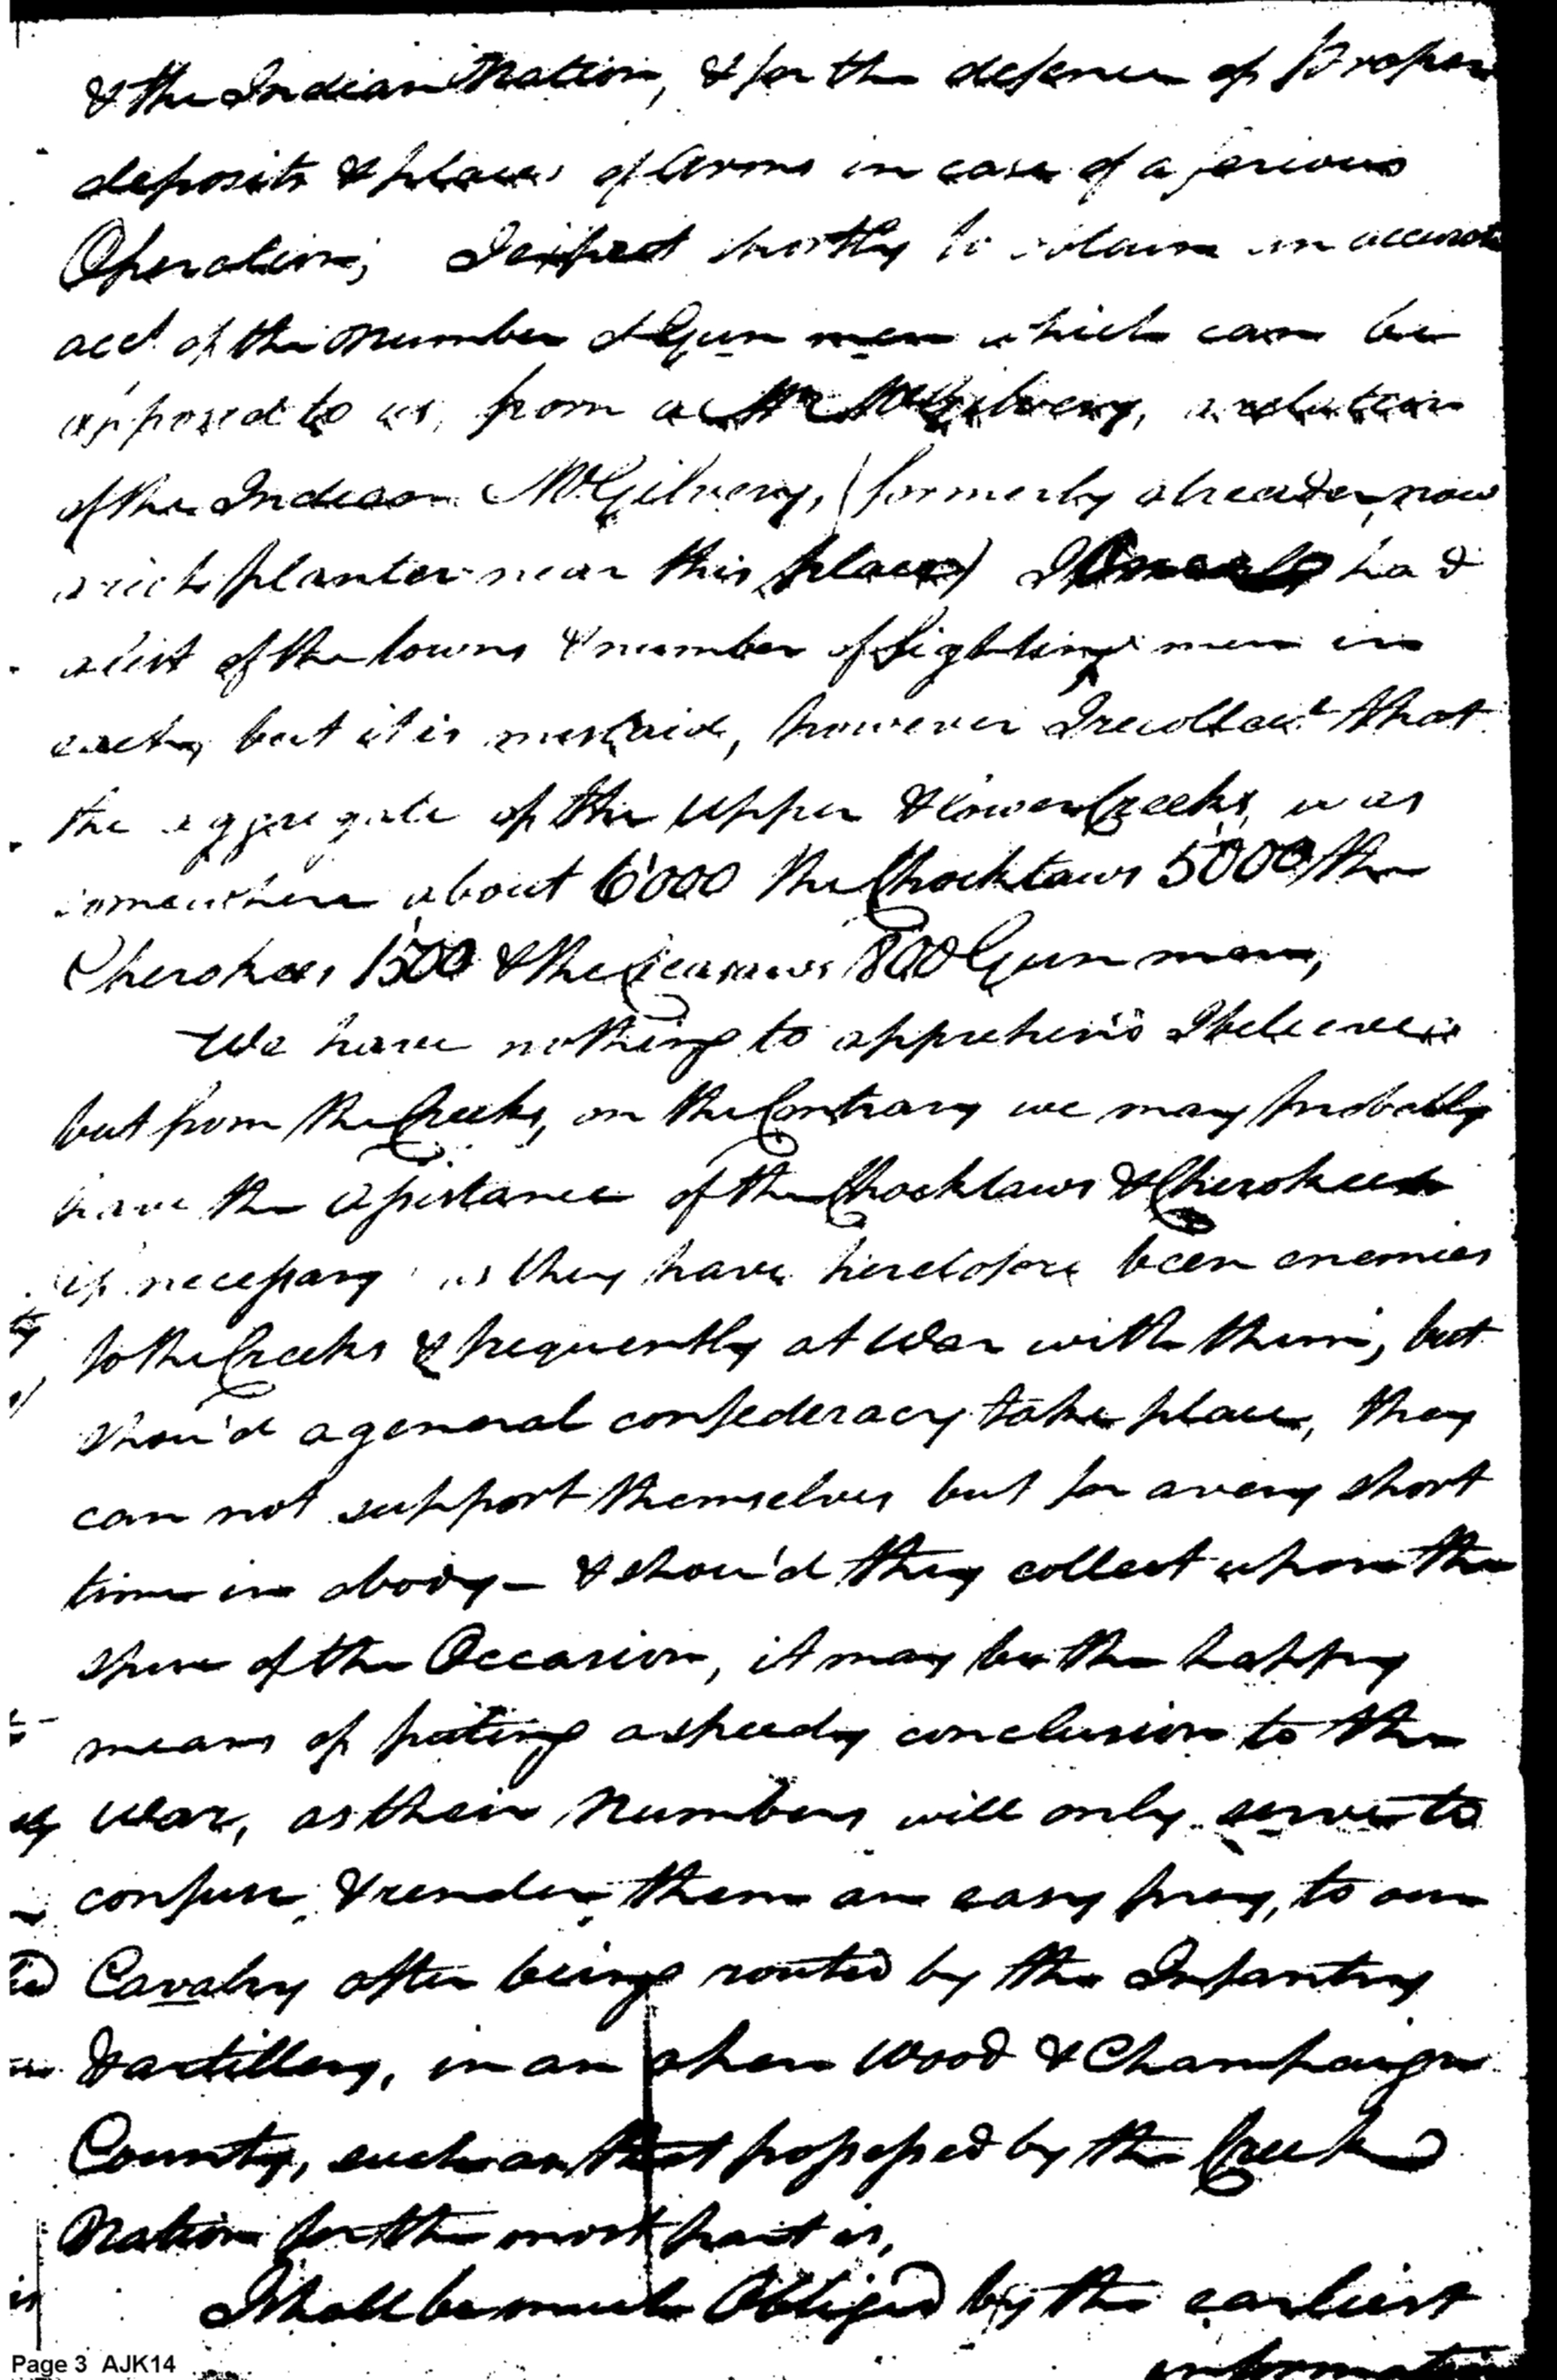 & the Indian Nation, & for the defence of Proper
deposits & places of Arms in case of a serious
Operation; I expect shortly to obtain an accurate
acct of the Number of Gun men which can be
opposed to us, from a Mr McGilvery, a relation
of the Indian McGilvery, (formerly a trader, now
a rich planter near this place) I had
a list of the towns & number of fighting men in
each, but it is mislaid, however I recollect that
the aggregate of the Upper & lower Creeks, was
somewhere about 6'000 the Chocktaws 5'000 the
Cherokees 1'500 & the Cicasaws 800 Gun men,
We have nothing to apprehend I believe
but from the Creeks, on the Contrary we may probably
have the assistance of the Chocktaws & Cherokees
if necessary as they have heretofore been enemies
to the Creeks & frequently at War with them, but
shou'd a general confederacy take place, they
can not support themselves but for a very short
time in a body – & shou'd they collect upon the
spur of the Occasion, it may be the happy
means of puting a speedy conclusion to the
War, as their Numbers will only serve to
confuse, & render them an easy prey, to our
Cavalry after being routed by the Infantry
& artillery, in an open Wood & Champaign
County, such as that possessed by the Creek
Nation for the most part is,
I shall be much Obliged by the earliest
information
Page 3 AJK14